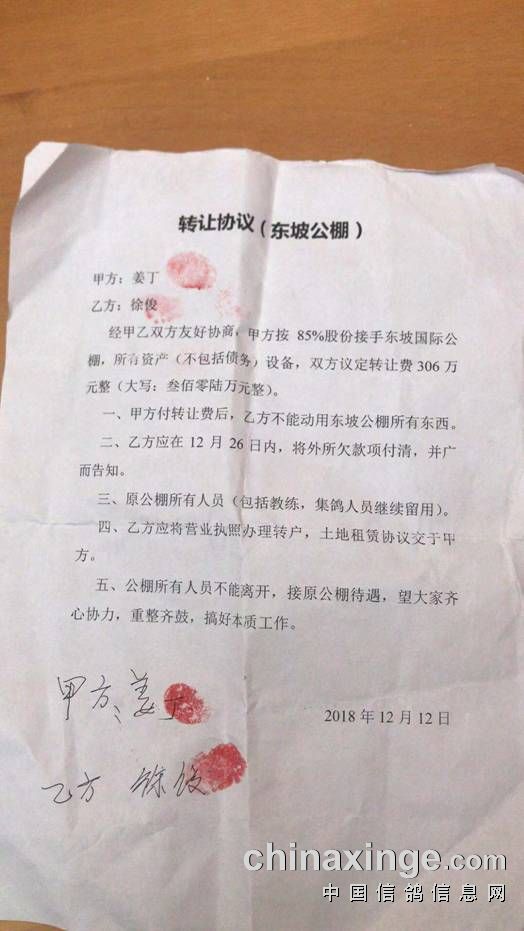 转让协议（东坡公棚）
甲方：姜丁
乙方：徐俊
经甲乙双方友好协商，甲方按 85%股份接手东坡国际公
棚，所有资产（不包括债务）设备，双方议定转让费 306 万
元整（大写：叁佰零陆万元整）。
一、甲方付转让费后，乙方不能动用东坡公棚所有东西。
二、乙方应在 12 月 26 日内，将外所欠款项付清，并广
而告知。
三、原公棚所有人员（包括教练，集鸽人员继续留用）。
四、乙方应将营业执照办理转户，土地租赁协议交于甲
方。
五、公棚所有人员不能离开，接原公棚待遇，望大家齐
心协力，重整齐鼓，搞好本质工作。
甲方、姜丁
2018 年 12 月 12 日
乙方 徐俊
chinaxinge.com
中国信鸽信息网